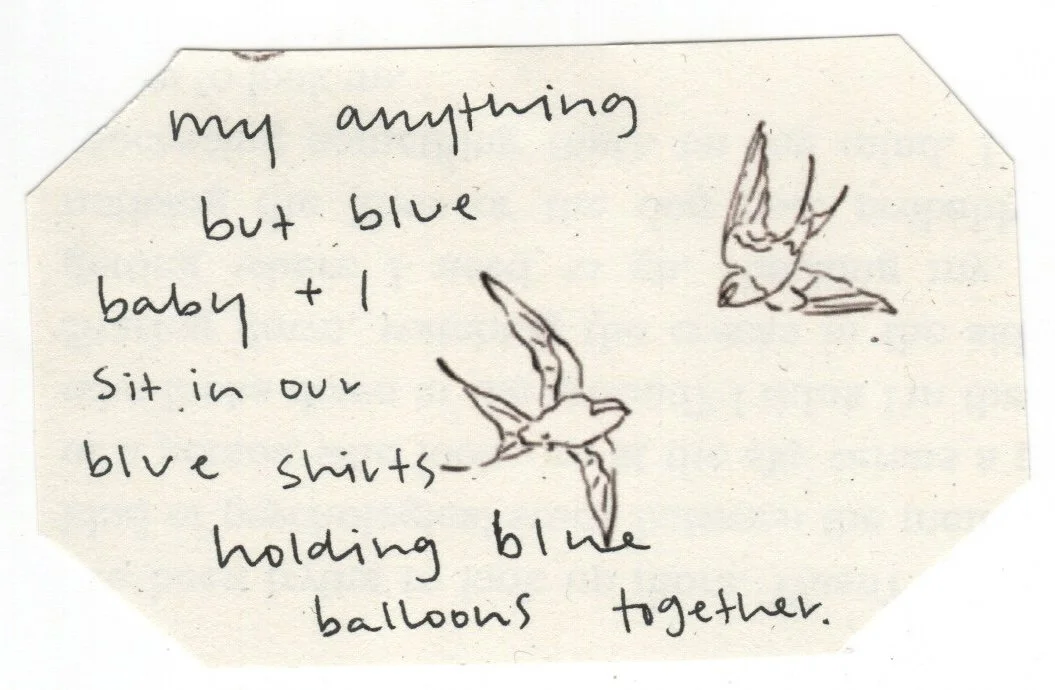 my anything
but blue
baby + I
sit in our
blue shirts-
holding blue
balloons together.